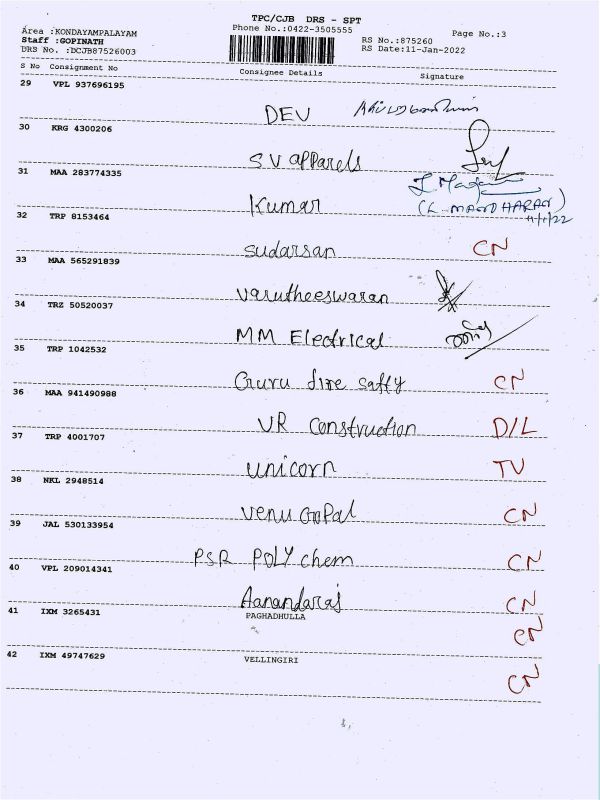 TPC/CJB DRS - SPT
Area :KONDAYAMPALAYAM Phone No.:0422-3505555 Page No.:3
Staff :GOPINATH RS No.:875260
DRS No. :DCJB87526003 RS Date:11-Jan-2022
S No Consignment No Consignee Details Signature
29 VPL 937696195
DEV
30 KRG 4300206
SV apparels
31 MAA 283774335
Kumar (L. MANOHARAN) 11/1/22
32 TRP 8153464
Sudarsan CN
33 MAA 565291839
Varutheeswaran
34 TRZ 50520037
MM Electrical
35 TRP 1042532
Guru fire saffy CN
36 MAA 941490988
VR Construction D/L
37 TRP 4001707
unicorn TV
38 NKL 2948514
Venu GoPal CN
39 JAL 530133954
PSR POLY chem CN
40 VPL 209014341
Aanandaraj CN
41 IXM 3265431 PAGHADHULLA
CN
42 IXM 49747629 VELLINGIRI
CN